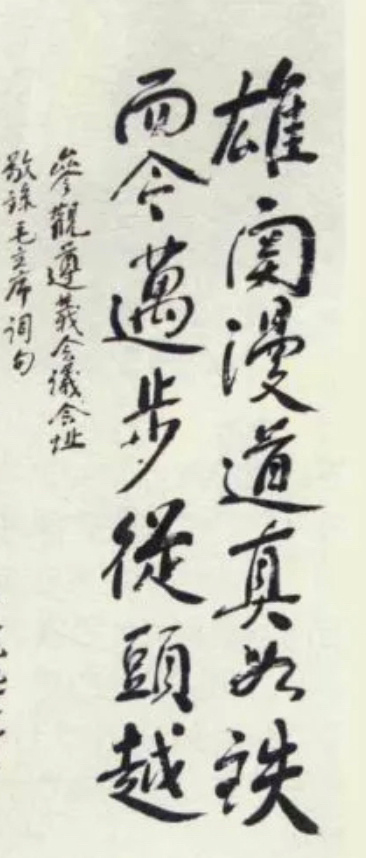 雄関漫道真如鉄
而今邁步從頭越
參觀遵義会議会址
敬録毛主席词句